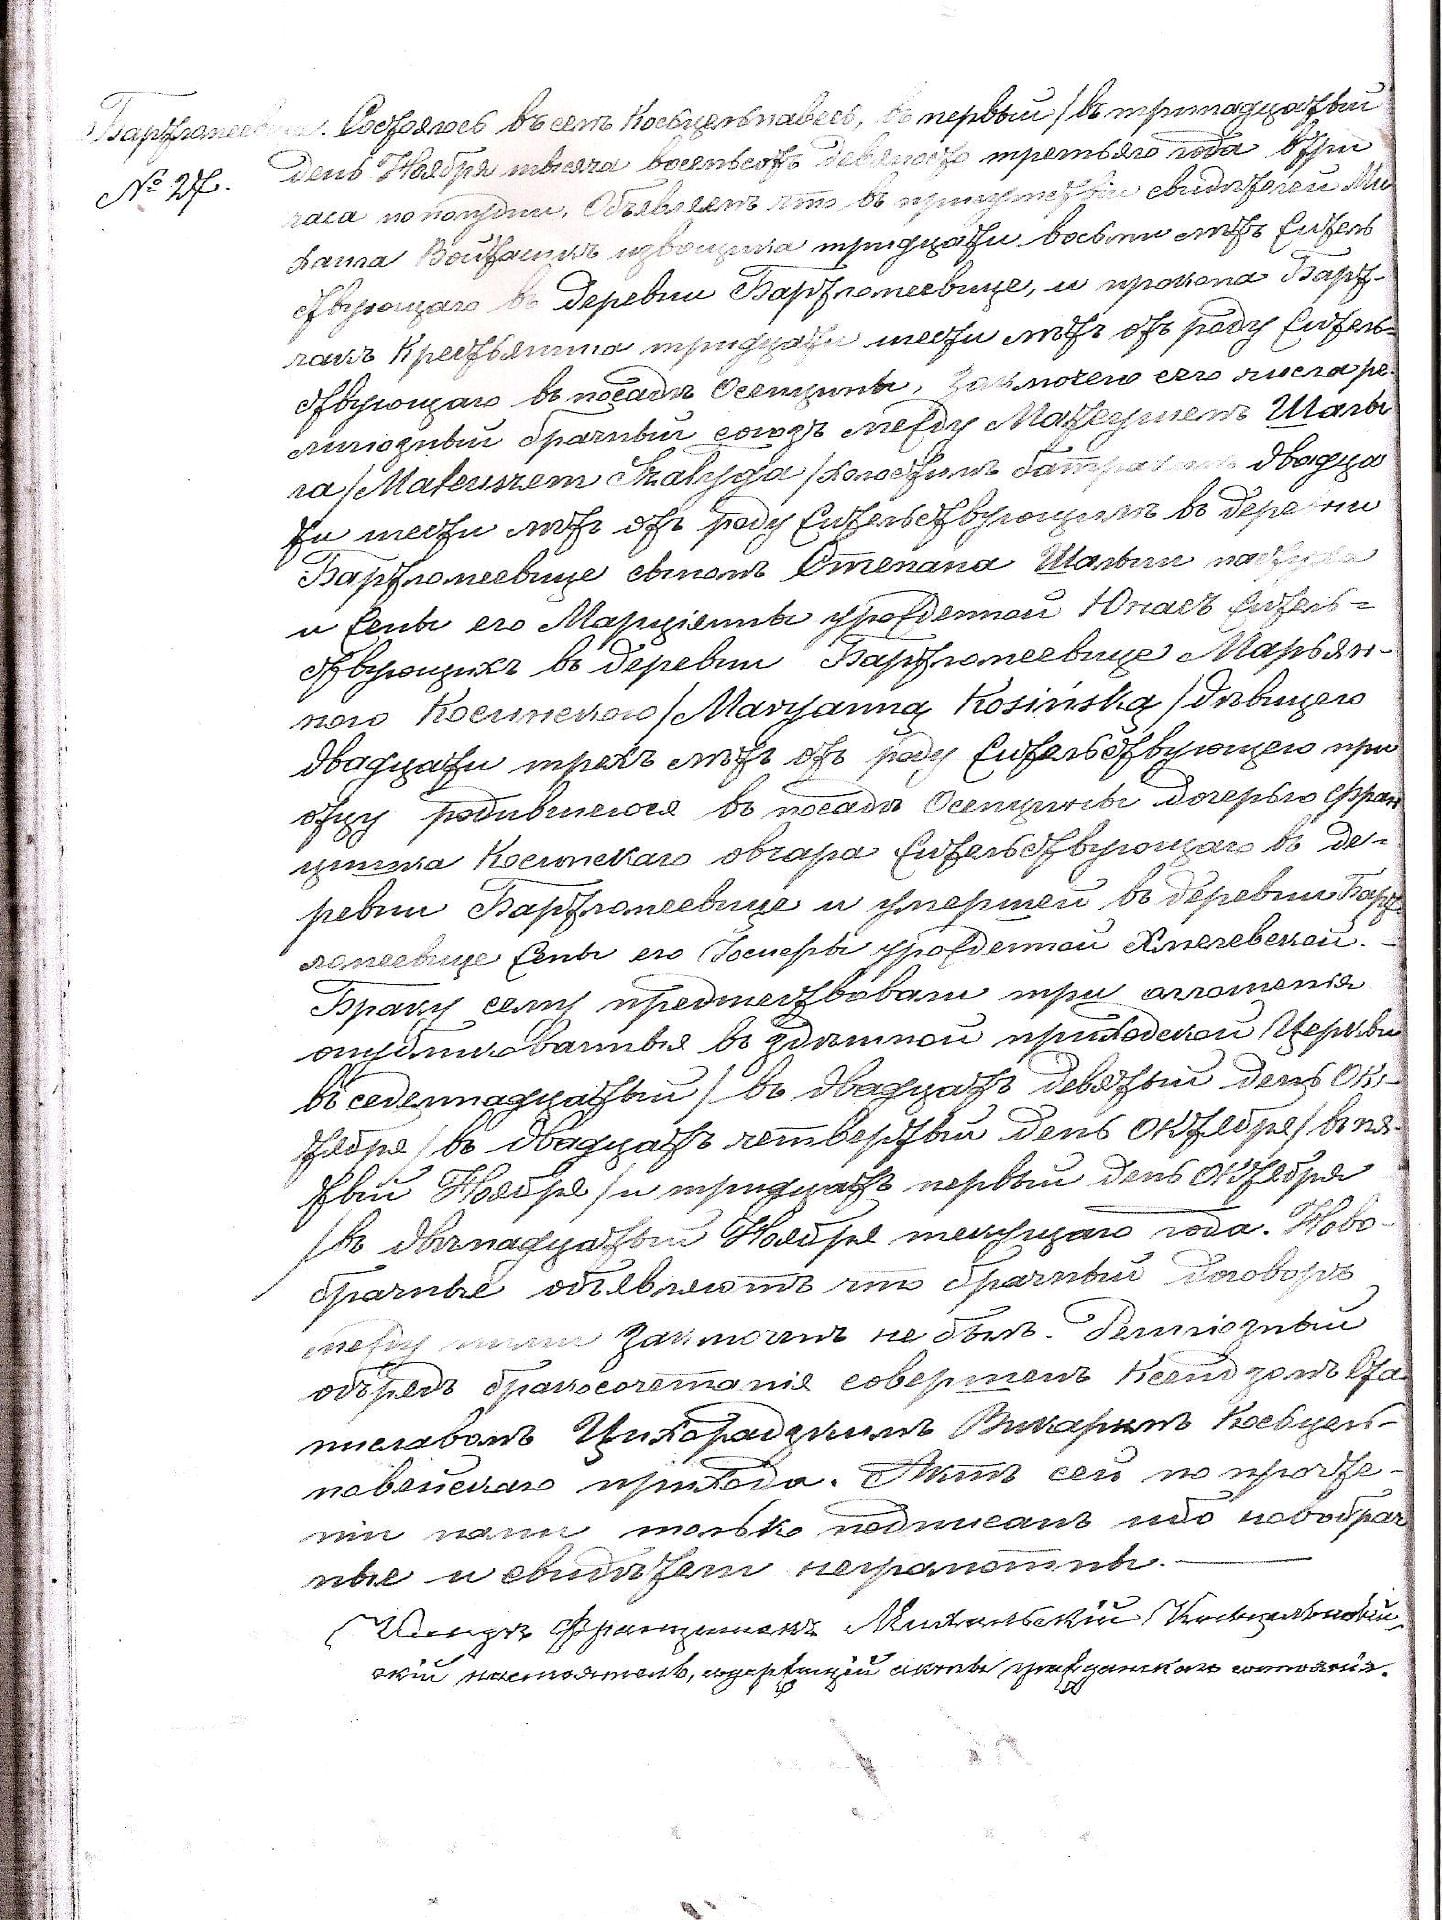 Бартломеевице. Состоялось въ селѣ Косьцельнавесь, въ первый /въ тринадцатый
№ 27.
день Ноября тысяча восемьсотъ девяносто третьяго года въ три
часа по полудни. Объявляемъ что въ присутствіи свидѣтелей Ми
хаила Войтасикъ извощика тридцати восьми лѣтъ житель
ствующаго въ деревни Бартломеевице, и прокопа Барт-
чакъ Крестьянина тридцати шести лѣтъ отъ роду жітель-
ствующаго въ посадѣ Осенцины, заключено сего числа ре-
лигіозный брачный союзъ между Матеушемъ Шалы
га /Mateuszem Szałygą/ холостымъ батракомъ двадца
ти шести лѣтъ отъ роду жительствующимъ въ деревни
Бартломеевице сыномъ Степана Шалыги пастуха
и жены его Марціянны урожденной Юнасъ житель-
ствующихъ въ деревни Бартломеевице Марьян-
ною Косинскою /Maryanną Kosińską/ дѣвицею
двадцати трехъ лѣтъ отъ роду жительствующею при
отцу родившеюся въ посадѣ Осенцины дочерью Фран
цишка Косинскаго овчара жительствующаго въ де-
ревни Бартломеевице и умершей въ деревни Барт
ломеевице жены его Іосифы урожденной Хмелевской. -
Браку сему предшествовали три оглошенія
опубликованныя въ здѣшной приходской Церкви
въ седемнадцатый /въ двадцать девятый день Ок-
тября/ въ двадцать четвертый день Октября /въ пя-
тый Ноября/ и тридцать первый день Октября
/въ двѣнадцатый Ноября текущаго года. Ново-
брачные объявляютъ что брачный договоръ
между ними заключенъ не былъ. Религіозный
обрядъ бракосочетанія совершенъ Ксендзомъ Ста
ниславомъ Цихорадзкимъ Викаримъ Косьцель-
новейскаго прихода. Актъ сей по прочте-
ніи нами только подписанъ ибо новобрач
ные и свидѣтели неграмотны.
Ксендзъ Францишекъ Михальскій Косьцельновей-
скій настоятель, содержащій акты гражданскаго состоянія.